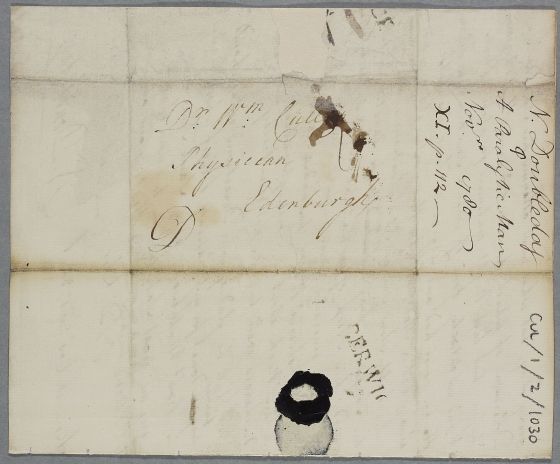 Dr. Wm Cull
Physician
Edenburgh
D
N. Doubleday
A Paralytic Man
Novr. 1780
XI. p. 112
Cul/1/2/1030
BERWIC